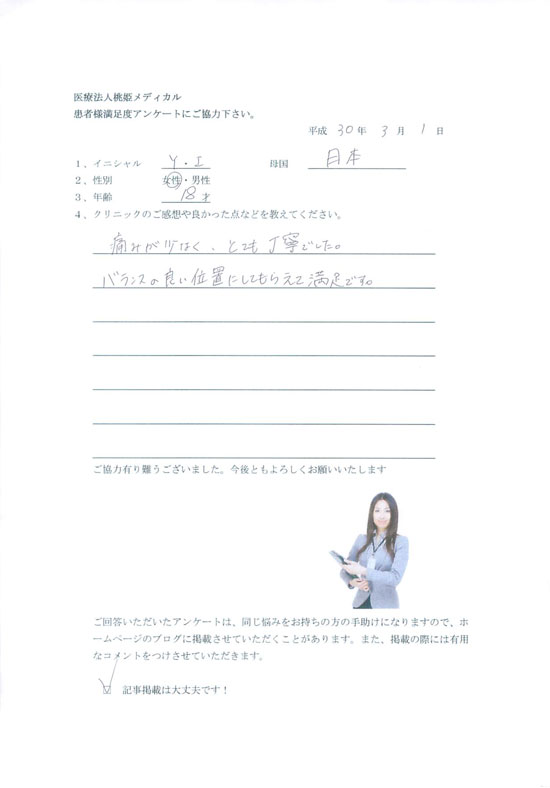 医療法人桃姫メディカル
患者様満足度アンケートにご協力下さい。
平成 30年 3月 1日
1，イニシャル Y・I 母国 日本
2，性別 女性・男性
3，年齢 18才
4，クリニックのご感想や良かった点などを教えてください。
痛みが少なく、とても丁寧でした。
バランスの良い位置にしてもらえて満足です。
ご協力有り難うございました。今後ともよろしくお願いいたします
ご回答いただいたアンケートは、同じ悩みをお持ちの方の手助けになりますので、ホ
ームページのブログに掲載させていただくことがあります。また、掲載の際には有用
なコメントをつけさせていただきます。
記事掲載は大丈夫です！